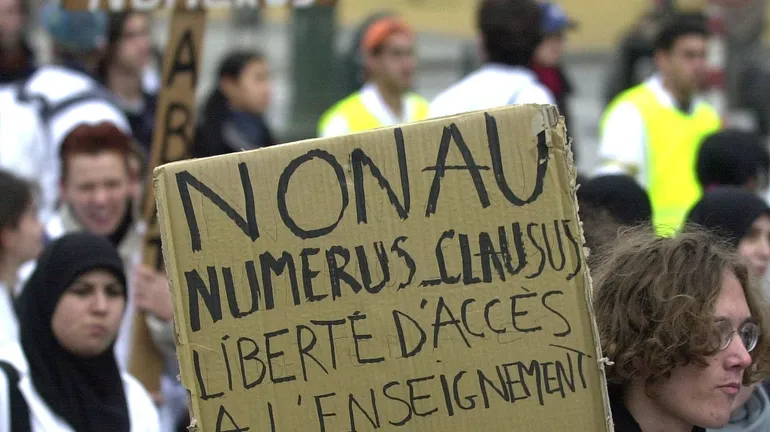 NUMERUS
AB
NON AU
NUMERUS_CLAUSUS
LIBERTÉ D'ACCÈS
A L'ENSEIGNEMENT